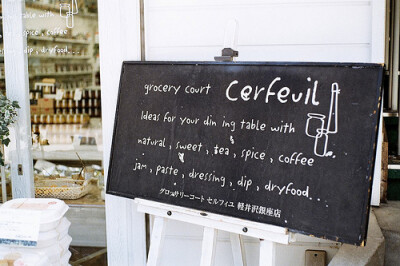 table with
spice, coffee
dip, dryfood...
grocery court Cerfeuil
Ideas for your dining table with
natural, sweet, tea, spice, coffee
jam, paste, dressing, dip, dryfood...
グロッサリーコート セルフィユ 軽井沢銀座店